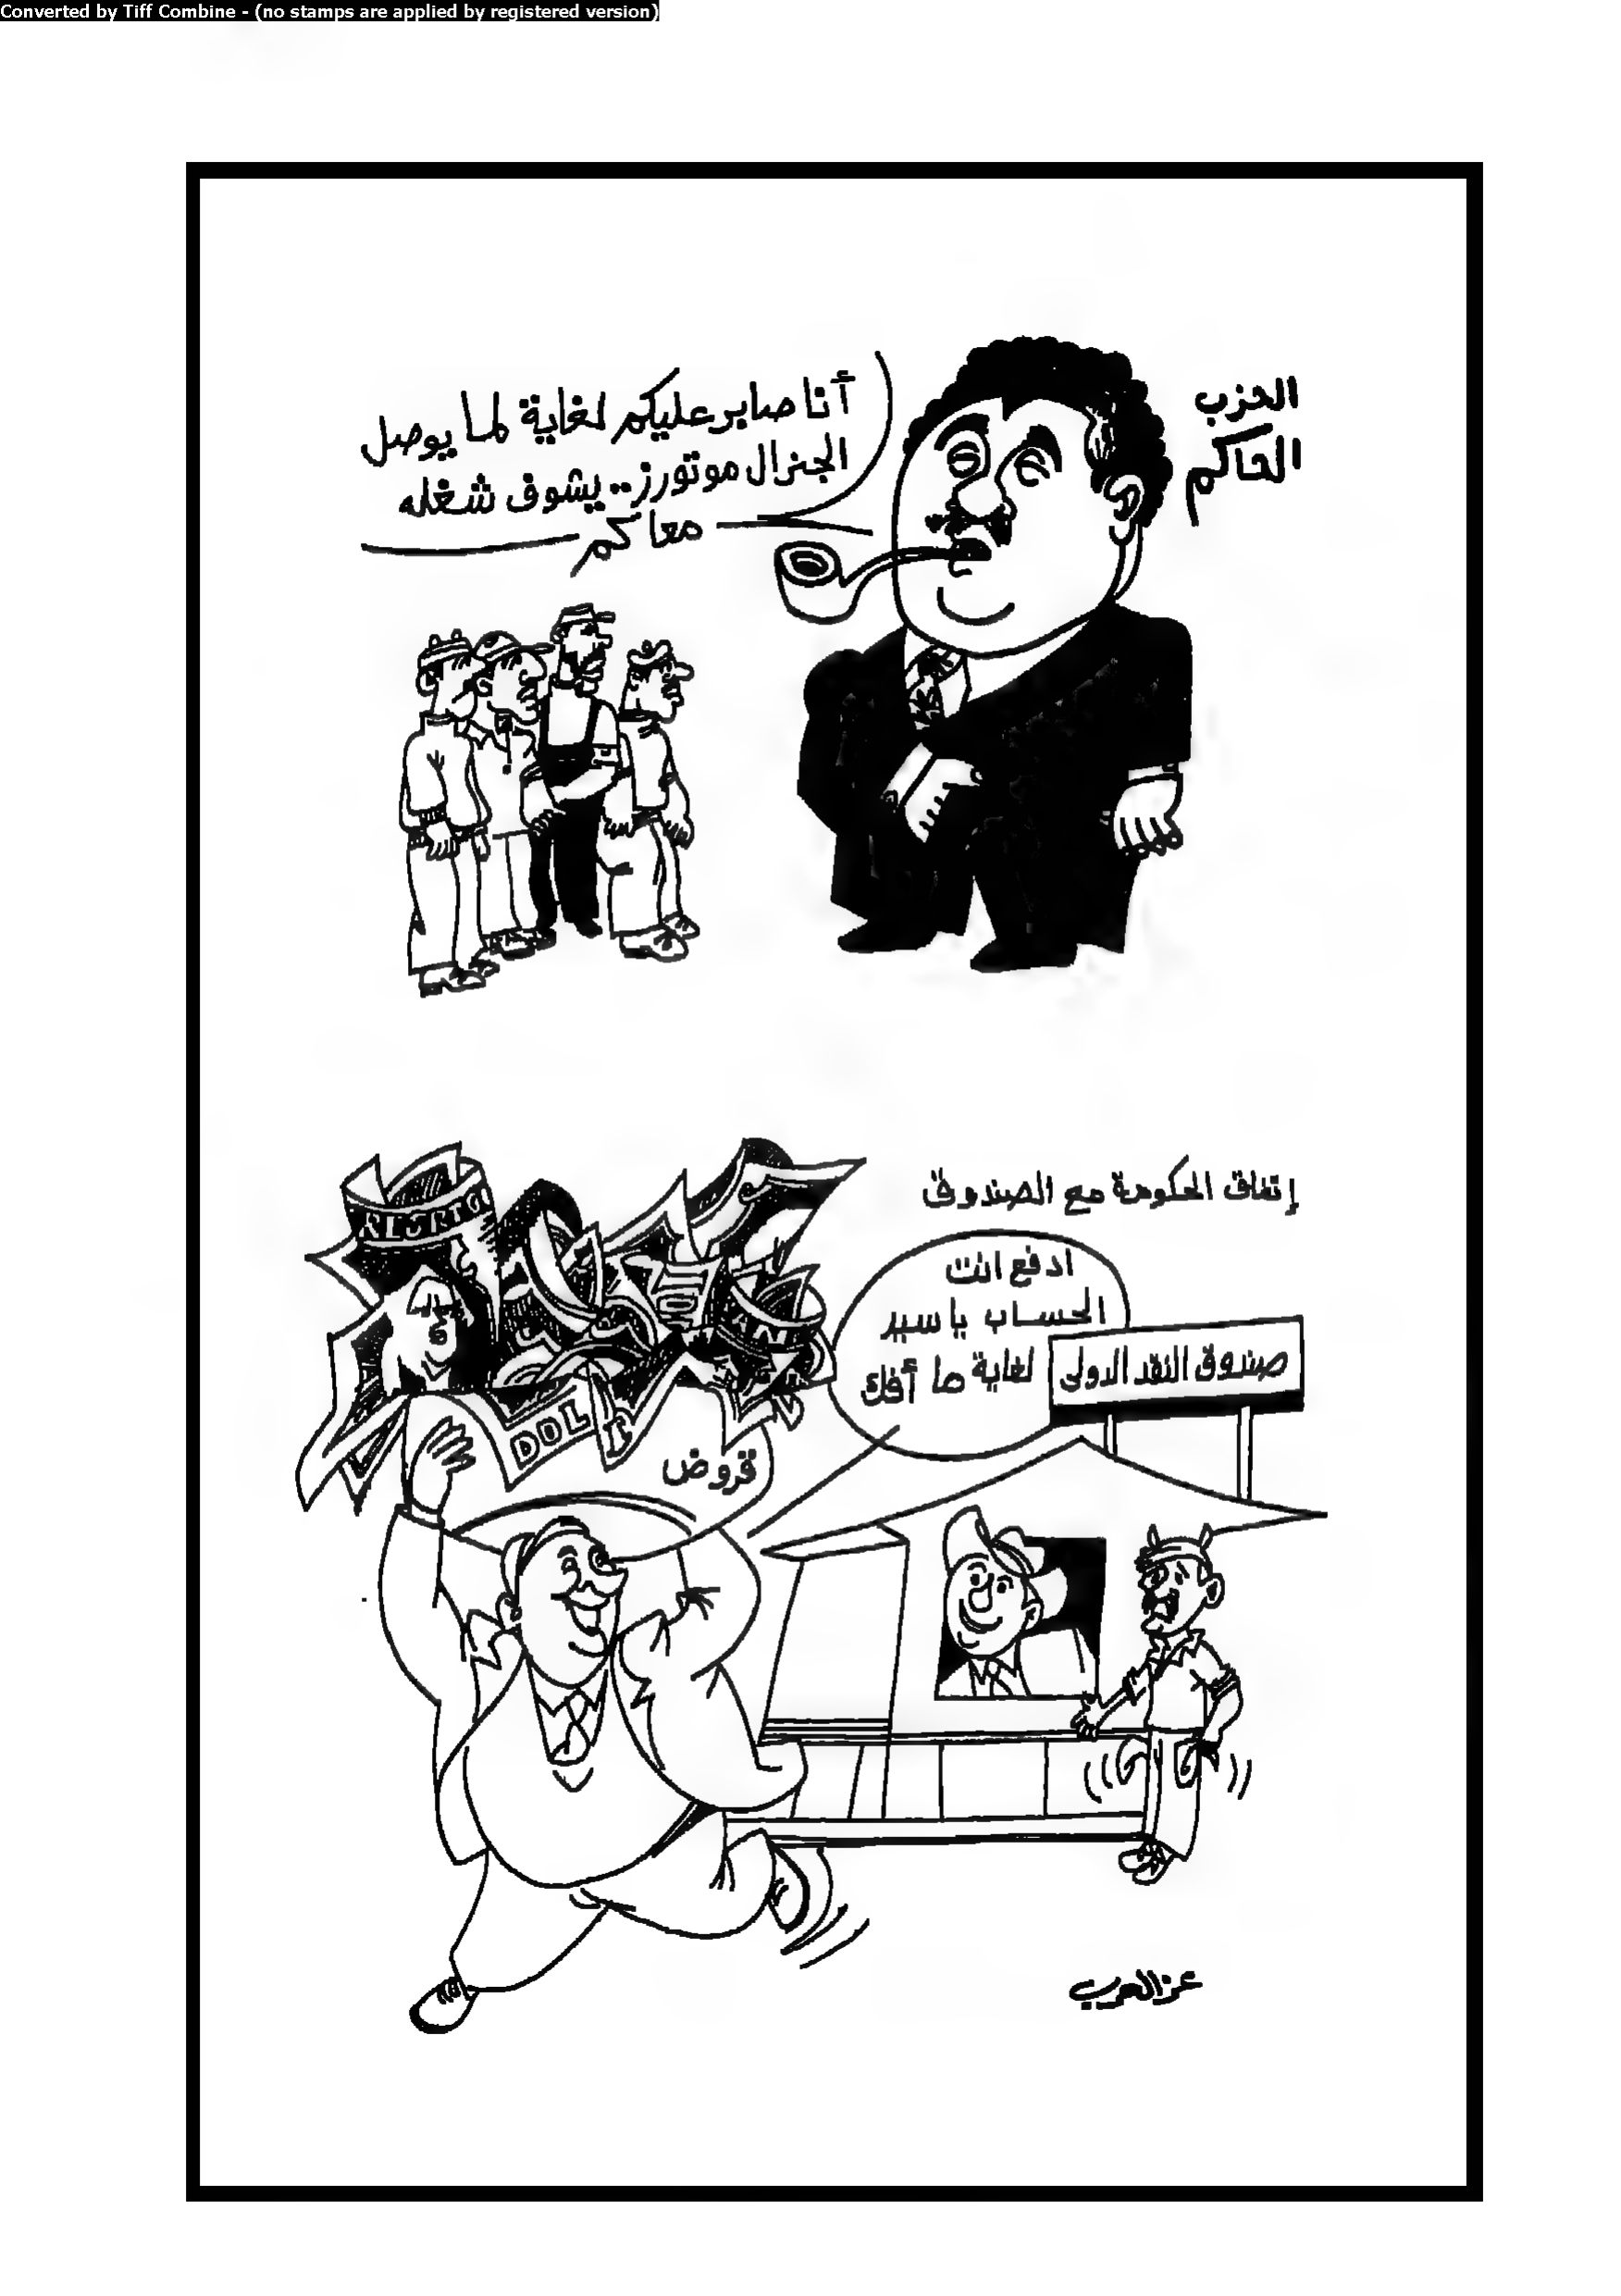 Converted by Tiff Combine - (no stamps are applied by registered version)
الحزب
الحاكم
أنا صابر عليكم لغاية لما يوصل
الجنرال موتورز.. يشوف شغله
معاكم
إتفاق الحكومة مع الصندوق
ادفع انت
الحساب يا سيد
لغاية ما أفك
صندوق النقد الدولى
DOL
AN
قروض
عز العرب